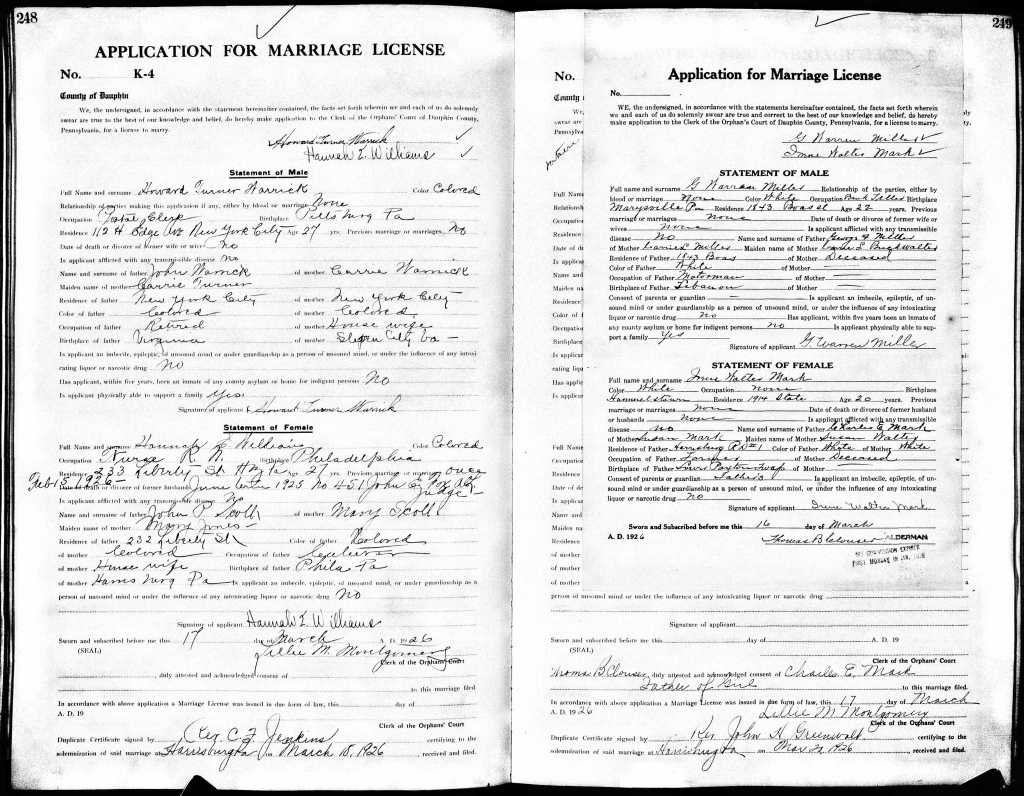 248
APPLICATION FOR MARRIAGE LICENSE
No. K-4
County of Dauphin
We, the undersigned, in accordance with the statement hereinafter contained, the facts set forth wherein we and each of us do solemnly
swear are true to the best of our knowledge and belief, do hereby make application to the Clerk of the Orphans' Court of Dauphin County,
Pennsylvania, for a license to marry.
Howard Turner Warrick
Hannah E. Williams
Statement of Male
Full Name and surname Howard Turner Warrick Color Colored
Relationship of parties making this application if any, either by blood or marriage None
Occupation Postal Clerk Birthplace Pittsburg Pa
Residence 112 Edge Ave New York City Age 27 yrs. Previous marriage or marriages No
Date of death or divorce of former wife or wives no
Is applicant afflicted with any transmissible disease no
Name and surname of father John Warrick of mother Carrie Warrick
Maiden name of mother Carrie Turner
Residence of father New York City of mother New York City
Color of father Colored of mother Colored
Occupation of father Retired of mother House wife
Birthplace of father Virginia of mother City Va
Is applicant an imbecile, epileptic, of unsound mind or under guardianship as a person of unsound mind, or under the influence of any intoxi-
cating liquor or narcotic drug no
Has applicant, within five years, been an inmate of any county asylum or home for indigent persons No
Is applicant physically able to support a family Yes
Signature of applicant Howard Turner Warrick
Statement of Female
Full Name and surname Hannah E Williams Color Colored
Occupation Nurse R. N. Birthplace Philadelphia
Residence 233 Liberty St Age 27 yrs. Previous marriage or marriages once
Feb 15 1926 Date of death or divorce of former husband June term 1925 No 451 John E Fox
Judge
Is applicant afflicted with any transmissible disease No
Name and surname of father John P. Scott of mother Mary Scott
Maiden name of mother Mary Jones
Residence of father 232 Liberty St Color of father Colored
of mother Colored Occupation of father
of mother House wife Birthplace of father Phila Pa
of mother Harrisburg Pa Is applicant an imbecile, epileptic, of unsound mind, or under guardianship as a
person of unsound mind or under the influence of any intoxicating liquor or narcotic drug no
Signature of applicant Hannah E. Williams
Sworn and subscribed before me this 17 day of March A. D. 1926
(SEAL) Lillie M. Montgomery
Clerk of the Orphans' Court
, duty attested and acknowledged consent of
to this marriage filed
In accordance with above application a Marriage License was issued in due form of law, this day of
A. D. 19
Clerk of the Orphans' Court
Duplicate Certificate signed by Rev C. F. Jenkins certifying to the
solemnization of said marriage at Harrisburg Pa on March 18, 1926 , received and filed.
249
No.
County
Application for Marriage License
No.
WE, the undersigned, in accordance with the statements hereinafter contained, the facts set forth wherein
we and each of us do solemnly swear are true and correct to the best of our knowledge and belief, do hereby
make application to the Clerk of the Orphan's Court of Dauphin County, Pennsylvania, for a license to marry.
G Warren Miller
Irene Walter Mark
STATEMENT OF MALE
Full name and surname G Warren Miller Relationship of the parties, either by
blood or marriage None Color White Occupation Bank Teller Birthplace
Marysville Pa Residence 1843 Boas St Age 22 years. Previous
marriage or marriages none Date of death or divorce of former wife or
wives none Is applicant afflicted with any transmissible
disease No Name and surname of Father George A Miller
of Mother Carrie L Miller Maiden name of Mother
Residence of Father 1843 Boas of Mother Deceased
Color of Father White of Mother —
Occupation of Father Motorman of Mother —
Birthplace of Father Lebanon of Mother —
Consent of parents or guardian — Is applicant an imbecile, epileptic, of un-
sound mind or under guardianship as a person of unsound mind, or under the influence of any intoxicating
liquor or narcotic drug No Has applicant, within five years been an inmate of
any county asylum or home for indigent persons no Is applicant physically able to sup-
port a family Yes
Signature of applicant G Warren Miller
STATEMENT OF FEMALE
Full name and surname Irene Walter Mark
Color White Occupation none Birthplace
Hummelstown Residence 1914 State Age 20 years. Previous
marriage or marriages none Date of death or divorce of former husband
or husbands none Is applicant afflicted with any transmissible
disease No Name and surname of Father Charles E Mark
of Mother Susan Mark Maiden name of Mother Susan Walter
Residence of Father Harrisburg R D #1 Color of Father White of Mother White
Occupation of Father Farmer of Mother Deceased
Birthplace of Father Lower Paxton Twp of Mother —
Consent of parents or guardian Father Is applicant an imbecile, epileptic, of un-
sound mind or under guardianship as a person of unsound mind, or under the influence of any intoxicating
liquor or narcotic drug no
Signature of applicant Irene Walter Mark
Sworn and Subscribed before me this 16 day of March
A. D. 1926 Thomas B Clouser ALDERMAN
MY COMMISSION EXPIRES
FIRST MONDAY IN JAN.
person of unsound mind or under the influence of any intoxicating liquor or narcotic drug
Signature of applicant
Sworn and subscribed before me this day of A. D. 19
(SEAL)
Clerk of the Orphans' Court
Thomas B. Clouser, duty attested and acknowledged consent of Charles E. Mark
Father of Girl to this marriage filed.
In accordance with above application a Marriage License was issued in due form of law, this 17 day of March
A. D. 1926 Lillie M. Montgomery
Clerk of the Orphans' Court
Duplicate Certificate signed by Rev. John H Greenwalt certifying to the
solemnization of said marriage at Harrisburg Pa on Mar 20, 1926 , received and filed.